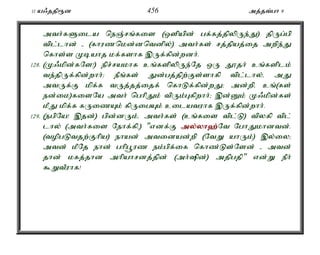 11 யஃததிரூன 456 அத்தவ்பா 9
அவர்களுடைய நெஞ்சங்களை (ஒளியின் பக்கத்திலிருந்து) திருப்பி
விட்டான் . (காரணமென்னவெனில்) அவர்கள் சத்தியத்தை அறிந்து
கொள்ள முடியாத மக்களாக இருக்கின்றனர்.
128. (முஃமின்களே!) நிச்சயமாக உங்களிலிருந்தே ஒரு தூதர் உங்களிடம்
வந்திருக்கின்றார்; நீங்கள் துன்பத்திற்குள்ளாகி விட்டால், அது
அவருக்கு மிக்க வருத்தத்தைக் கொடுக்கின்றது; அன்றி, உங்(கள்
நன்மை)களையே அவர் பெரிதும் விரும்புகிறார்; இன்னும் முஃமின்கள்
மீது மிக்க கருணையும் கிருபையும் உடையவராக இருக்கின்றார்.
129. (நபியே! இதன்) பின்னரும், அவர்கள் (உங்களை விட்டு) விலகி விட்
டால் (அவர்களை நோக்கி,) "எனக்கு அல்லாஹ்வே போதுமானவன்.
(வழிபடுவதற்குரிய) நாயன் அவனையன்றி (வேறு யாரும்) இல்லை;
அவன் மீதே நான் பரிபூரண நம்பிக்கை கொண்டுள்ளேன் . அவன்
தான் மகத்தான அரியாசனத்தின் (அர்ஷின்) அதிபதி" என்று நீர்
கூறுவீராக!